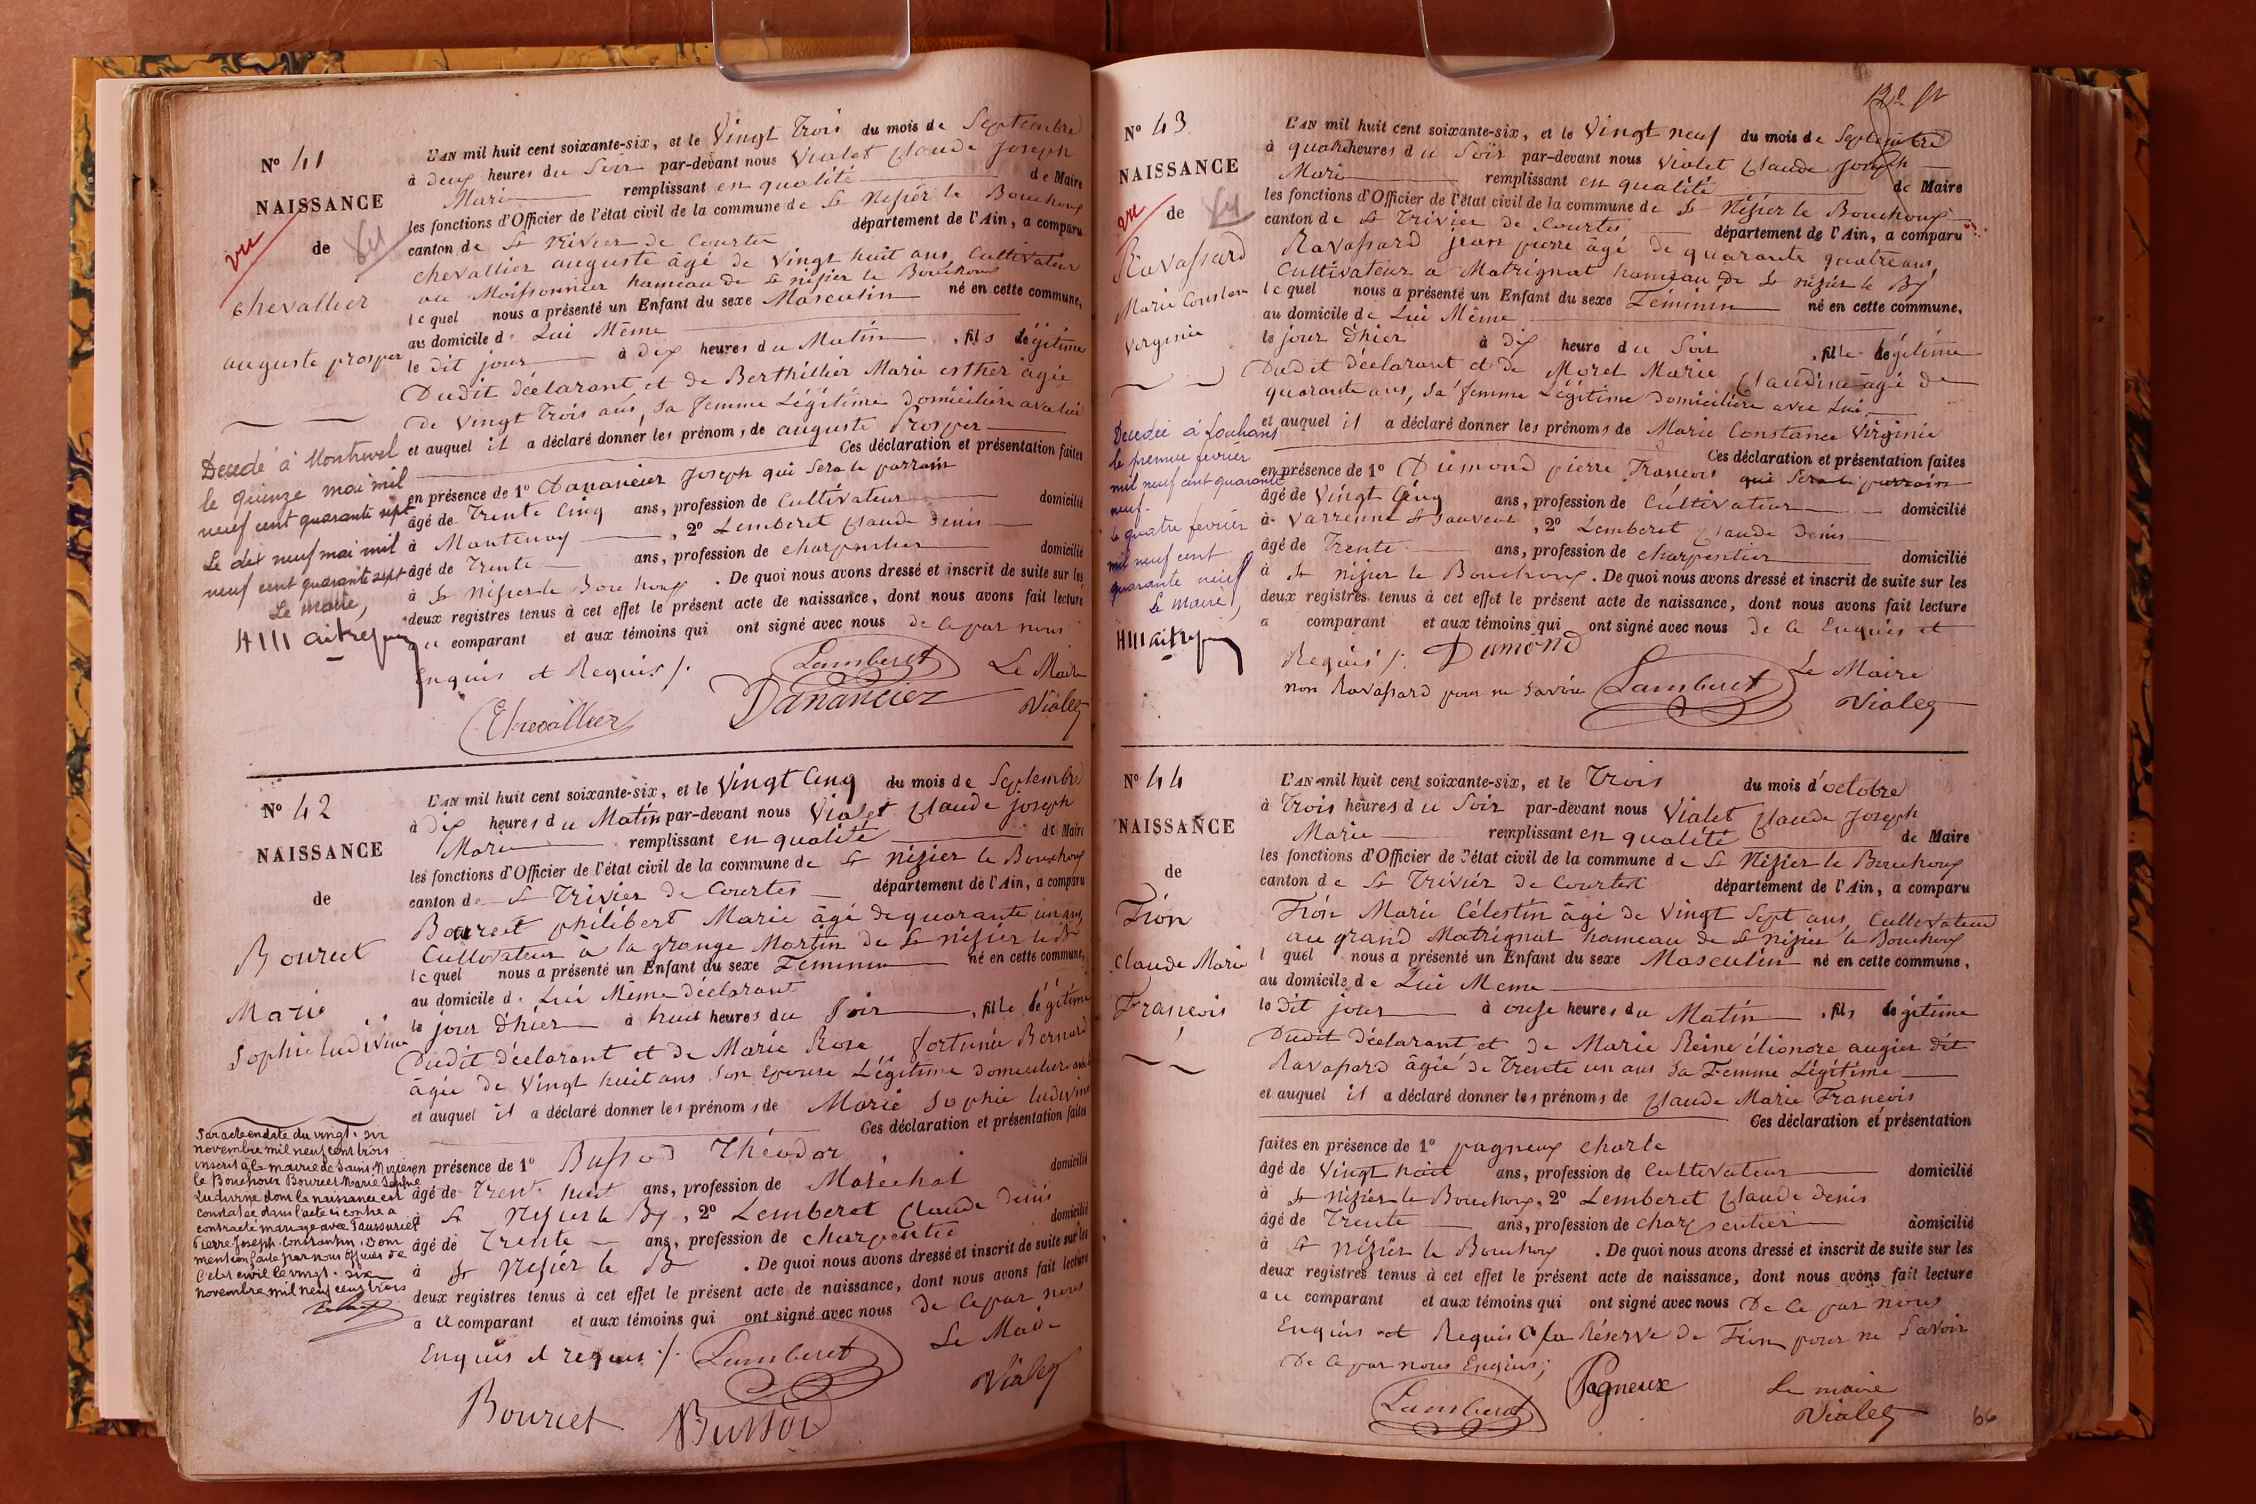 N° 41
NAISSANCE
de
vu
chevallier
auguste prosper
Decédé à Montrevel
le quinze mai mil
neuf cent quarante sept
Le dix neuf mai mil
neuf cent quarante sept
Le maire,
L'AN mil huit cent soixante-six, et le Vingt Trois du mois de Septembre
à deux heures du Soir par-devant nous Vialet Claude Joseph
Marie remplissant en qualité de Maire
les fonctions d'Officier de l'état civil de la commune de St Nizier le Bouchoux
canton de St Trivier de Courtes département de l'Ain, a comparu
chevallier auguste âgé de Vingt huit ans, Cultivateur
au Moissonnier hameau de St nizier le Bouchoux
lequel nous a présenté un Enfant du sexe Masculin né en cette commune,
au domicile de Lui Même
le dit jour à dix heures du Matin, fils légitime
Dudit déclarant et de Berthillier Marie esther âgée
de Vingt Trois ans, sa femme Légitime domiciliée avec lui
et auquel il a déclaré donner les prénoms de auguste Prosper
Ces déclaration et présentation faites
en présence de 1° Dananciez Joseph qui sera le parrain
âgé de Trente Cinq ans, profession de Cultivateur domicilié
à Mantenay, 2° Lemberet Claude Denis
âgé de Trente ans, profession de charpentier domicilié
à St Nizier le Bouchoux. De quoi nous avons dressé et inscrit de suite sur les
deux registres tenus à cet effet le présent acte de naissance, dont nous avons fait lecture
au comparant et aux témoins qui ont signé avec nous de ce par nous
Enquis et Requis /.
Lamberet
Le Maire
Chevallier
Dananciez
Vialet
N° 42
NAISSANCE
de
Bourcet
Marie
Sophie ludivine
Par acte en date du vingt-six
novembre mil neuf cent trois
inscrit à la mairie de Saint-Nizier
le Bouchoux Bourcet Marie Sophie
Ludivine dont la naissance est
constatée dans l'acte ci contre a
contracté mariage avec
Pierre Joseph Constantin. Dont
mention faite par nous Officier de
l'état civil le vingt-six
novembre mil neuf cent trois
L'AN mil huit cent soixante-six, et le Vingt Cinq du mois de Septembre
à dix heures du Matin par-devant nous Vialet Claude Joseph
Marie remplissant en qualité de Maire
les fonctions d'Officier de l'état civil de la commune de St Nizier le Bouchoux
canton de St Trivier de Courtes département de l'Ain, a comparu
Bourcet philibert Marie âgé de quarante un ans,
Cultivateur à la grange Martin de St nizier le Bx
lequel nous a présenté un Enfant du sexe Féminin né en cette commune,
au domicile de Lui Même déclarant
le jour d'hier à huit heures du Soir, fille légitime
Dudit déclarant et de Marie Rose fortunée Bernard
âgée de Vingt huit ans son Epouse Légitime domiciliée avec
et auquel il a déclaré donner les prénoms de Marie Sophie ludivine
Ces déclaration et présentation faites
en présence de 1° Bussod Théodor
âgé de Trente huit ans, profession de Maréchal domicilié
à St Nizier le Bx, 2° Lemberet Claude Denis
âgé de Trente ans, profession de charpentier domicilié
à St Nizier le Bx. De quoi nous avons dressé et inscrit de suite sur les
deux registres tenus à cet effet le présent acte de naissance, dont nous avons fait lecture
au comparant et aux témoins qui ont signé avec nous de ce par nous
Enquis et requis /.
Lamberet
Le Maire
Bourcet
Bussod
Vialet
N° 43
NAISSANCE
de
vu
Ravassard
Marie Constance
Virginie
Décédée à Louhans
le premier février
mil neuf cent quarante
neuf.
Le quatre février
mil neuf cent
quarante neuf
Le maire,
L'AN mil huit cent soixante-six, et le Vingt neuf du mois de Septembre
à quatre heures du Soir par-devant nous Vialet Claude Joseph
Marie remplissant en qualité de Maire
les fonctions d'Officier de l'état civil de la commune de St Nizier le Bouchoux
canton de St Trivier de Courtes département de l'Ain, a comparu
Ravassard jean pierre âgé de quarante quatre ans,
Cultivateur a Matrignat hameau de St nizier le Bx
lequel nous a présenté un Enfant du sexe Féminin né en cette commune,
au domicile de Lui Même
le jour d'hier à dix heure du Soir, fille légitime
Dudit déclarant et de Morel Marie Claudine âgé de
quarante ans, sa femme Légitime domiciliée avec Lui,
et auquel il a déclaré donner les prénoms de Marie Constance Virginie
Ces déclaration et présentation faites
en présence de 1° Dumond pierre François qui sera le parrain
âgé de Vingt Cinq ans, profession de Cultivateur domicilié
à Varrenne St Sauveur, 2° Lemberet Claude Denis
âgé de Trente ans, profession de charpentier domicilié
à St nizier le Bouchoux. De quoi nous avons dressé et inscrit de suite sur les
deux registres tenus à cet effet le présent acte de naissance, dont nous avons fait lecture
a comparant et aux témoins qui ont signé avec nous de ce Enquis et
Requis /. Dumond
non Ravassard pour ne savoir
Lamberet
Le Maire
Vialet
N° 44
NAISSANCE
de
Fion
Claude Marie
François
L'AN mil huit cent soixante-six, et le Trois du mois d'octobre
à Trois heures du Soir par-devant nous Vialet Claude Joseph
Marie remplissant en qualité de Maire
les fonctions d'Officier de l'état civil de la commune de St Nizier le Bouchoux
canton de St Trivier de Courtes département de l'Ain, a comparu
Fion Marie Célestin âgé de Vingt Sept ans, Cultivateur
au grand Matrignat hameau de St nizier le Bouchoux
l quel nous a présenté un Enfant du sexe Masculin né en cette commune,
au domicile de Lui Meme
le dit jour à onze heures du Matin, fils légitime
Dudit déclarant et de Marie Reine élionore augier dit
Ravassard âgée de Trente un ans sa Femme Légitime
et auquel il a déclaré donner les prénoms de Claude Marie François
Ces déclaration et présentation
faites en présence de 1° pagneux charle
âgé de Vingt huit ans, profession de Cultivateur domicilié
à St nizier le Bouchoux, 2° Lemberet Claude Denis
âgé de Trente ans, profession de charpentier domicilié
à St nizier le Bouchoux. De quoi nous avons dressé et inscrit de suite sur les
deux registres tenus à cet effet le présent acte de naissance, dont nous avons fait lecture
au comparant et aux témoins qui ont signé avec nous De ce par nous
Enquis et Requis a la Réserve de Fion pour ne Savoir
De ce par nous Enquis;
Lamberet
Pagneux
Le maire
Vialet
66